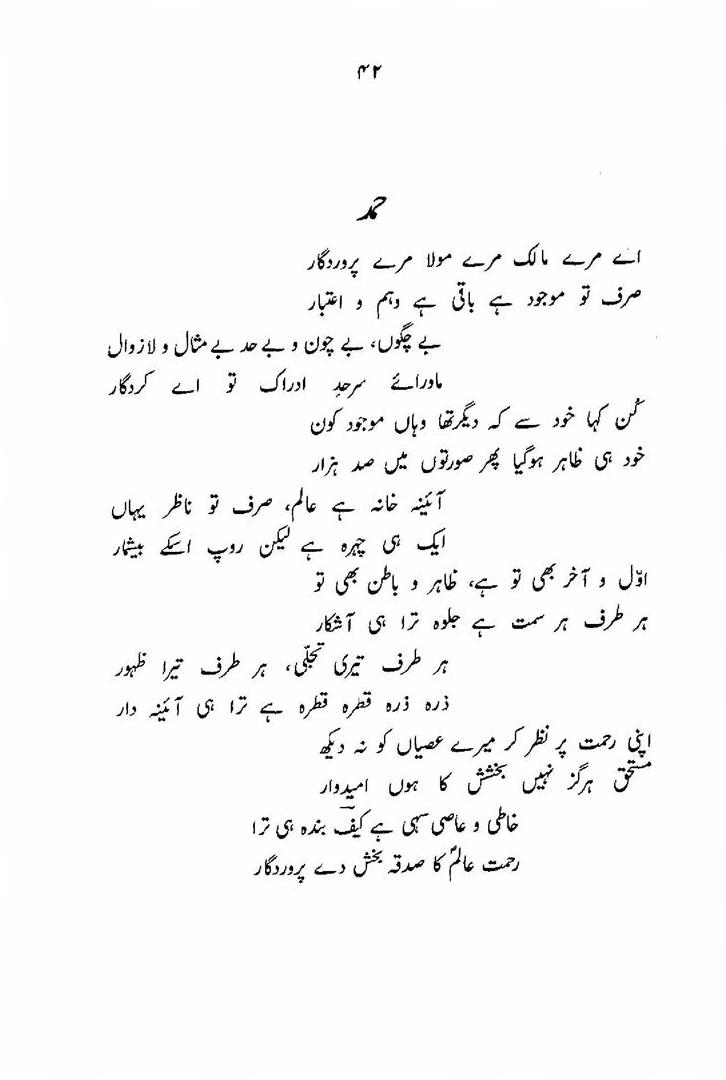 ۴۲
حمد
اے مرے مالک مرے مولا مرے پروردگار
صرف تو موجود ہے باقی ہے وہم و اعتبار
بے چگوں، بے چون و بے حد بے مثال و لازوال
ماورائے سرحدِ ادراک تو اے کردگار
کُن کہا خود سے کہ دیگر تھا وہاں موجود کون
خود ہی ظاہر ہوگیا پھر صورتوں میں صد ہزار
آئینہ خانہ ہے عالم، صرف تو ناظر یہاں
ایک ہی چہرہ ہے لیکن روپ اسکے بیشمار
اوّل و آخر بھی تو ہے، ظاہر و باطن بھی تو
ہر طرف ہر سمت ہے جلوہ ترا ہی آشکار
ہر طرف تیری تجلّی، ہر طرف تیرا ظہور
ذرہ ذرہ قطرہ قطرہ ہے ترا ہی آئینہ دار
اپنی رحمت پر نظر کر میرے عصیاں کو نہ دیکھ
مستحق ہرگز نہیں بخشش کا ہوں امیدوار
خاطی و عاصی سہی ہے کیفؔ بندہ ہی ترا
رحمت عالمؐ کا صدقہ بخش دے پروردگار